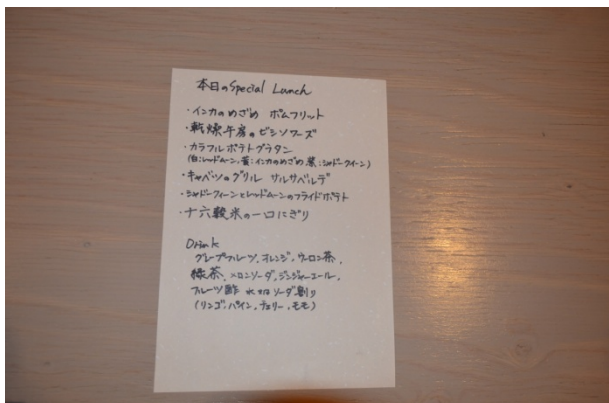 本日のSpecial Lunch
・インカのめざめ ポムフリット
・乾燥牛房のビシソワーズ
・カラフルポテトグラタン
(白:レッドムーン、黄:インカのめざめ 紫:シャドークイーン)
・キャベツのグリル サルサベルデ
・シャドークィーンとレッドムーンのフライドポテト
・十六穀米の一口にぎり
Drink
グレープフルーツ、オレンジ、ウーロン茶、
緑茶、メロンソーダ、ジンジャーエール、
フルーツ酢 水 or ソーダ割り
(リンゴ、パイン、チェリー、モモ)